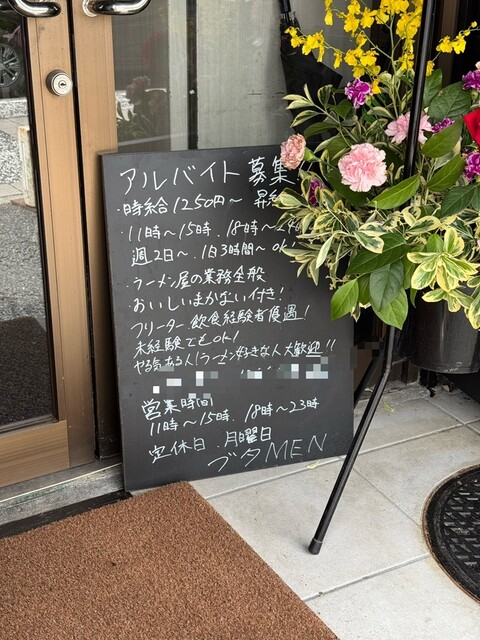 アルバイト募集
・時給1250円～ 昇給
・11時～15時、18時～24
週2日～、1日3時間～OK!
・ラーメン屋の業務全般
・おいしいまかない付き!
フリーター 飲食経験者優遇!
未経験でもOK!
やる気ある人!ラーメン好きな人大歓迎!!
営業時間
11時～15時、18時～23時
定休日、月曜日
ブタMEN